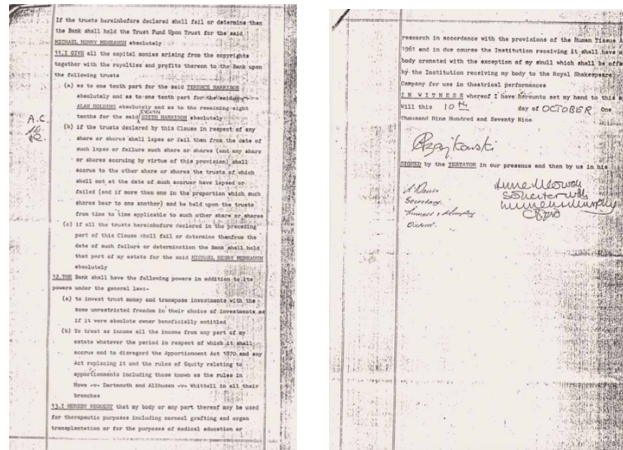 If the trusts hereinbefore declared shall fail or determine then
the Bank shall hold the Trust Fund Upon Trust for the said
MICHAEL HENRY MENEAUGH absolutely
11.I GIVE all the capital monies arising from the copyrights
together with the royalties and profits thereon to the Bank upon
the following trusts
(a) as to one tenth part for the said TERENCE HARRISON
absolutely and as to one tenth part for the
ALAN HOLDING absolutely and as to the remaining eight
tenths for the said EDITH HARRISON absolutely
A.C.
(b) if the trusts declared by this Clause in respect of any
share or shares shall lapse or fail then from the date of
such lapse or failure such share or shares (and any share
or shares accruing by virtue of this provision) shall
accrue to the other share or shares the trusts of which
shall not at the date of such accruer have lapsed or
failed (and if more than one in the proportion which such
shares bear to one another) and be held upon the trusts
from time to time applicable to such other share or shares
(c) if all the trusts hereinbefore declared in the preceding
part of this Clause shall fail or determine then from the
date of such failure or determination the Bank shall hold
that part of my estate for the said MICHAEL HENRY MENEAUGH
absolutely
12.THE Bank shall have the following powers in addition to its
powers under the general law:-
(a) to invest trust money and transpose investments with the
same unrestricted freedom in their choice of investments as
if it were absolute owner beneficially entitled
(b) To treat as income all the income from any part of my
estate whatever the period in respect of which it shall
accrue and to disregard the Apportionment Act 1870 and any
Act replacing it and the rules of Equity relating to
apportionments including those known as the rules in
Howe -v- Dartmouth and Allhusen -v- Whittell in all their
branches
13.I HEREBY REQUEST that my body or any part thereof may be used
for therapeutic purposes including corneal grafting and organ
transplantation or for the purposes of medical education or
research in accordance with the provisions of the Human Tissue A
1961 and in due course the Institution receiving it shall have
body cremated with the exception of my skull which shall be off
by the Institution receiving my body to the Royal Shakespeare
Company for use in theatrical performances
IN WITNESS whereof I have hereunto set my hand to this
Will this 10th day of OCTOBER One
Thousand Nine Hundred and Seventy Nine
SIGNED by the TESTATOR in our presence and then by us in his
Secretary
Solicitor with